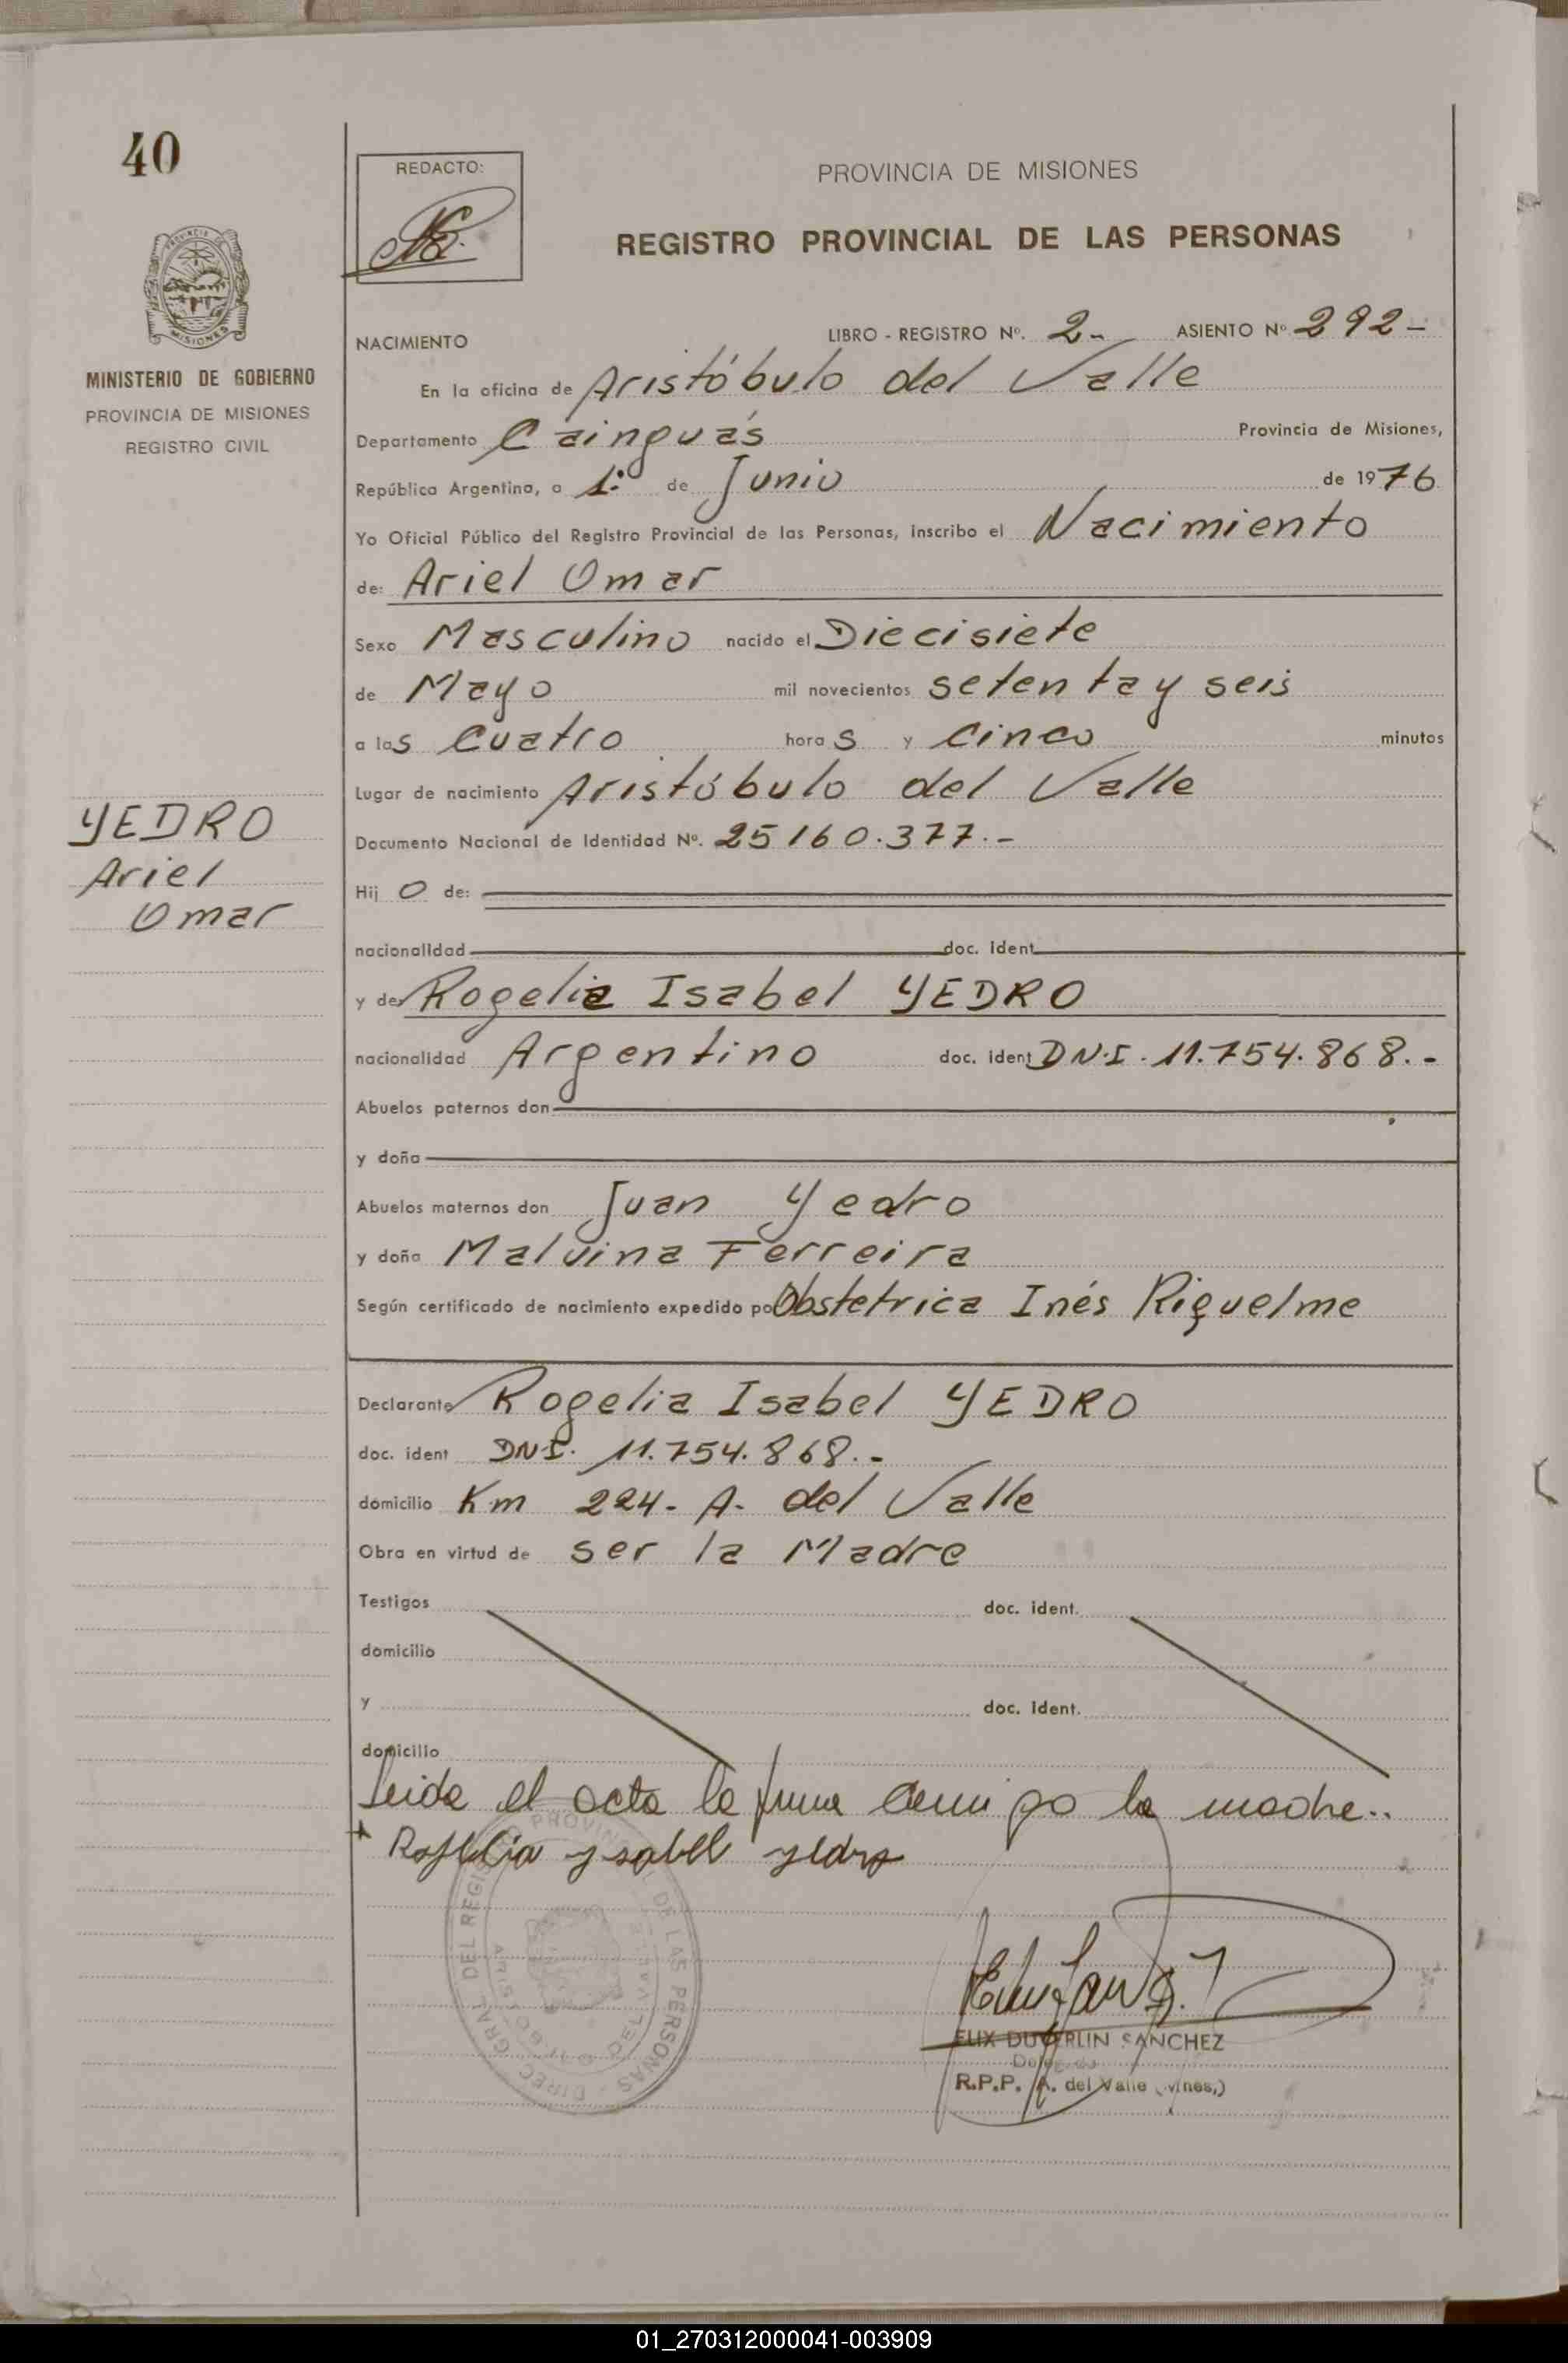 40
REDACTO:
PROVINCIA DE MISIONES
REGISTRO PROVINCIAL DE LAS PERSONAS
MISIONES
MINISTERIO DE GOBIERNO
PROVINCIA DE MISIONES
REGISTRO CIVIL
NACIMIENTO LIBRO - REGISTRO Nº. 2- ASIENTO Nº 292-
En la oficina de Aristóbulo del Valle
Departamento Cainguás Provincia de Misiones,
República Argentina, a 1º de Junio de 1976
Yo Oficial Público del Registro Provincial de las Personas, inscribo el Nacimiento
de: Ariel Omar
Sexo Masculino nacido el Diecisiete
de Mayo mil novecientos setenta y seis
a las Cuatro horas y Cinco minutos
Lugar de nacimiento Aristóbulo del Valle
Documento Nacional de Identidad Nº. 25160.377.-
YEDRO
Ariel
Omar
Hijo de:
nacionalidad doc. ident
y de Rogelia Isabel YEDRO
nacionalidad Argentino doc. ident DN.I. 11.754.868.-
Abuelos paternos don
y doña
Abuelos maternos don Juan Yedro
y doña Malvina Ferreira
Según certificado de nacimiento expedido po Obstetrica Inés Riquelme
Declarante Rogelia Isabel YEDRO
doc. ident DNI. 11.754.868.-
domicilio Km 224- A. del Valle
Obra en virtud de ser la Madre
Testigos doc. ident.
domicilio
y doc. ident.
domicilio
Leida el acta la firma la madre..
Rogelia ysabel yedro
DIREC. GRAL. DEL REGISTRO PROVINCIAL DE LAS PERSONAS
ARISTOBULO DEL VALLE
SANCHEZ
R.P.P. A. del Valle
01_270312000041-003909